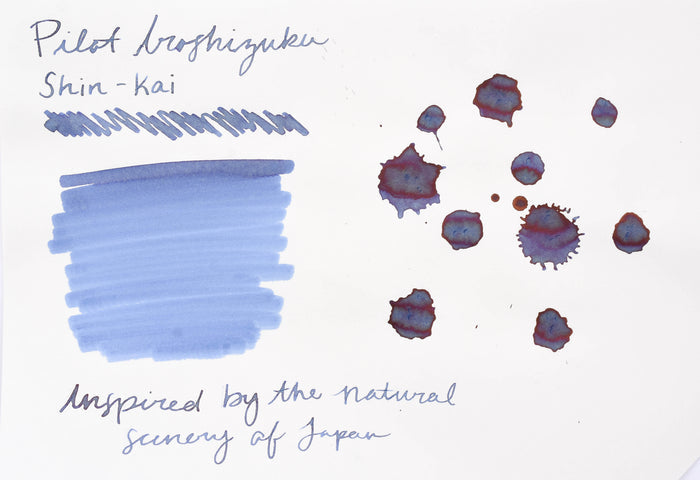 Pilot Iroshizuku
Shin-Kai
Inspired by the natural
scenery of Japan